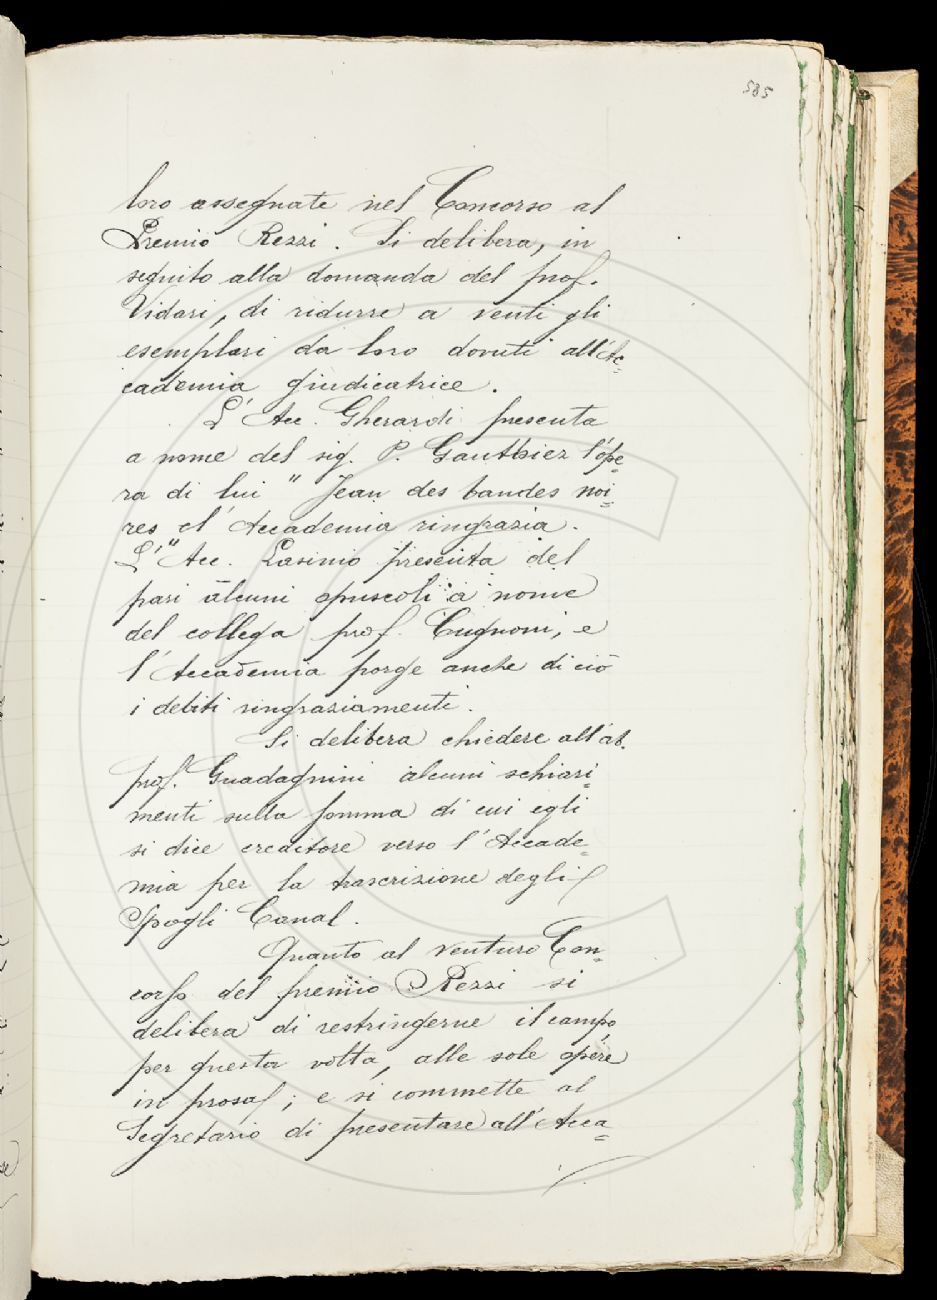 585
loro assegnate nel Concorso al
Premio Rezzi. Si delibera, in
seguito alla domanda del prof.
Vidari, di ridurre a venti gli
esemplari da loro dovuti all'Ac=
cademia giudicatrice.
L'Acc. Gherardi presenta
a nome del sig. P. Gauthiez l'ope=
ra di lui "Jean des bandes noi=
res" el'Accademia ringrazia.
L'Acc. Lasinio presenta del
pari alcuni opuscoli a nome
del collega prof. Cugnoni, e
l'Accademia porge anche di ciò
i debiti ringraziamenti.
Si delibera chiedere all'ab.
prof. Guadagnini alcuni schiari=
menti sulla somma di cui egli
si dice creditore verso l'Accade=
mia per la trascrizione degli
Spogli Canal.
Quanto al venturo Con=
corso del premio Rezzi si
delibera di restringerne il campo,
per questa volta, alle sole opere
in prosa; e si commette al
Segretario di presentare all'Acca=